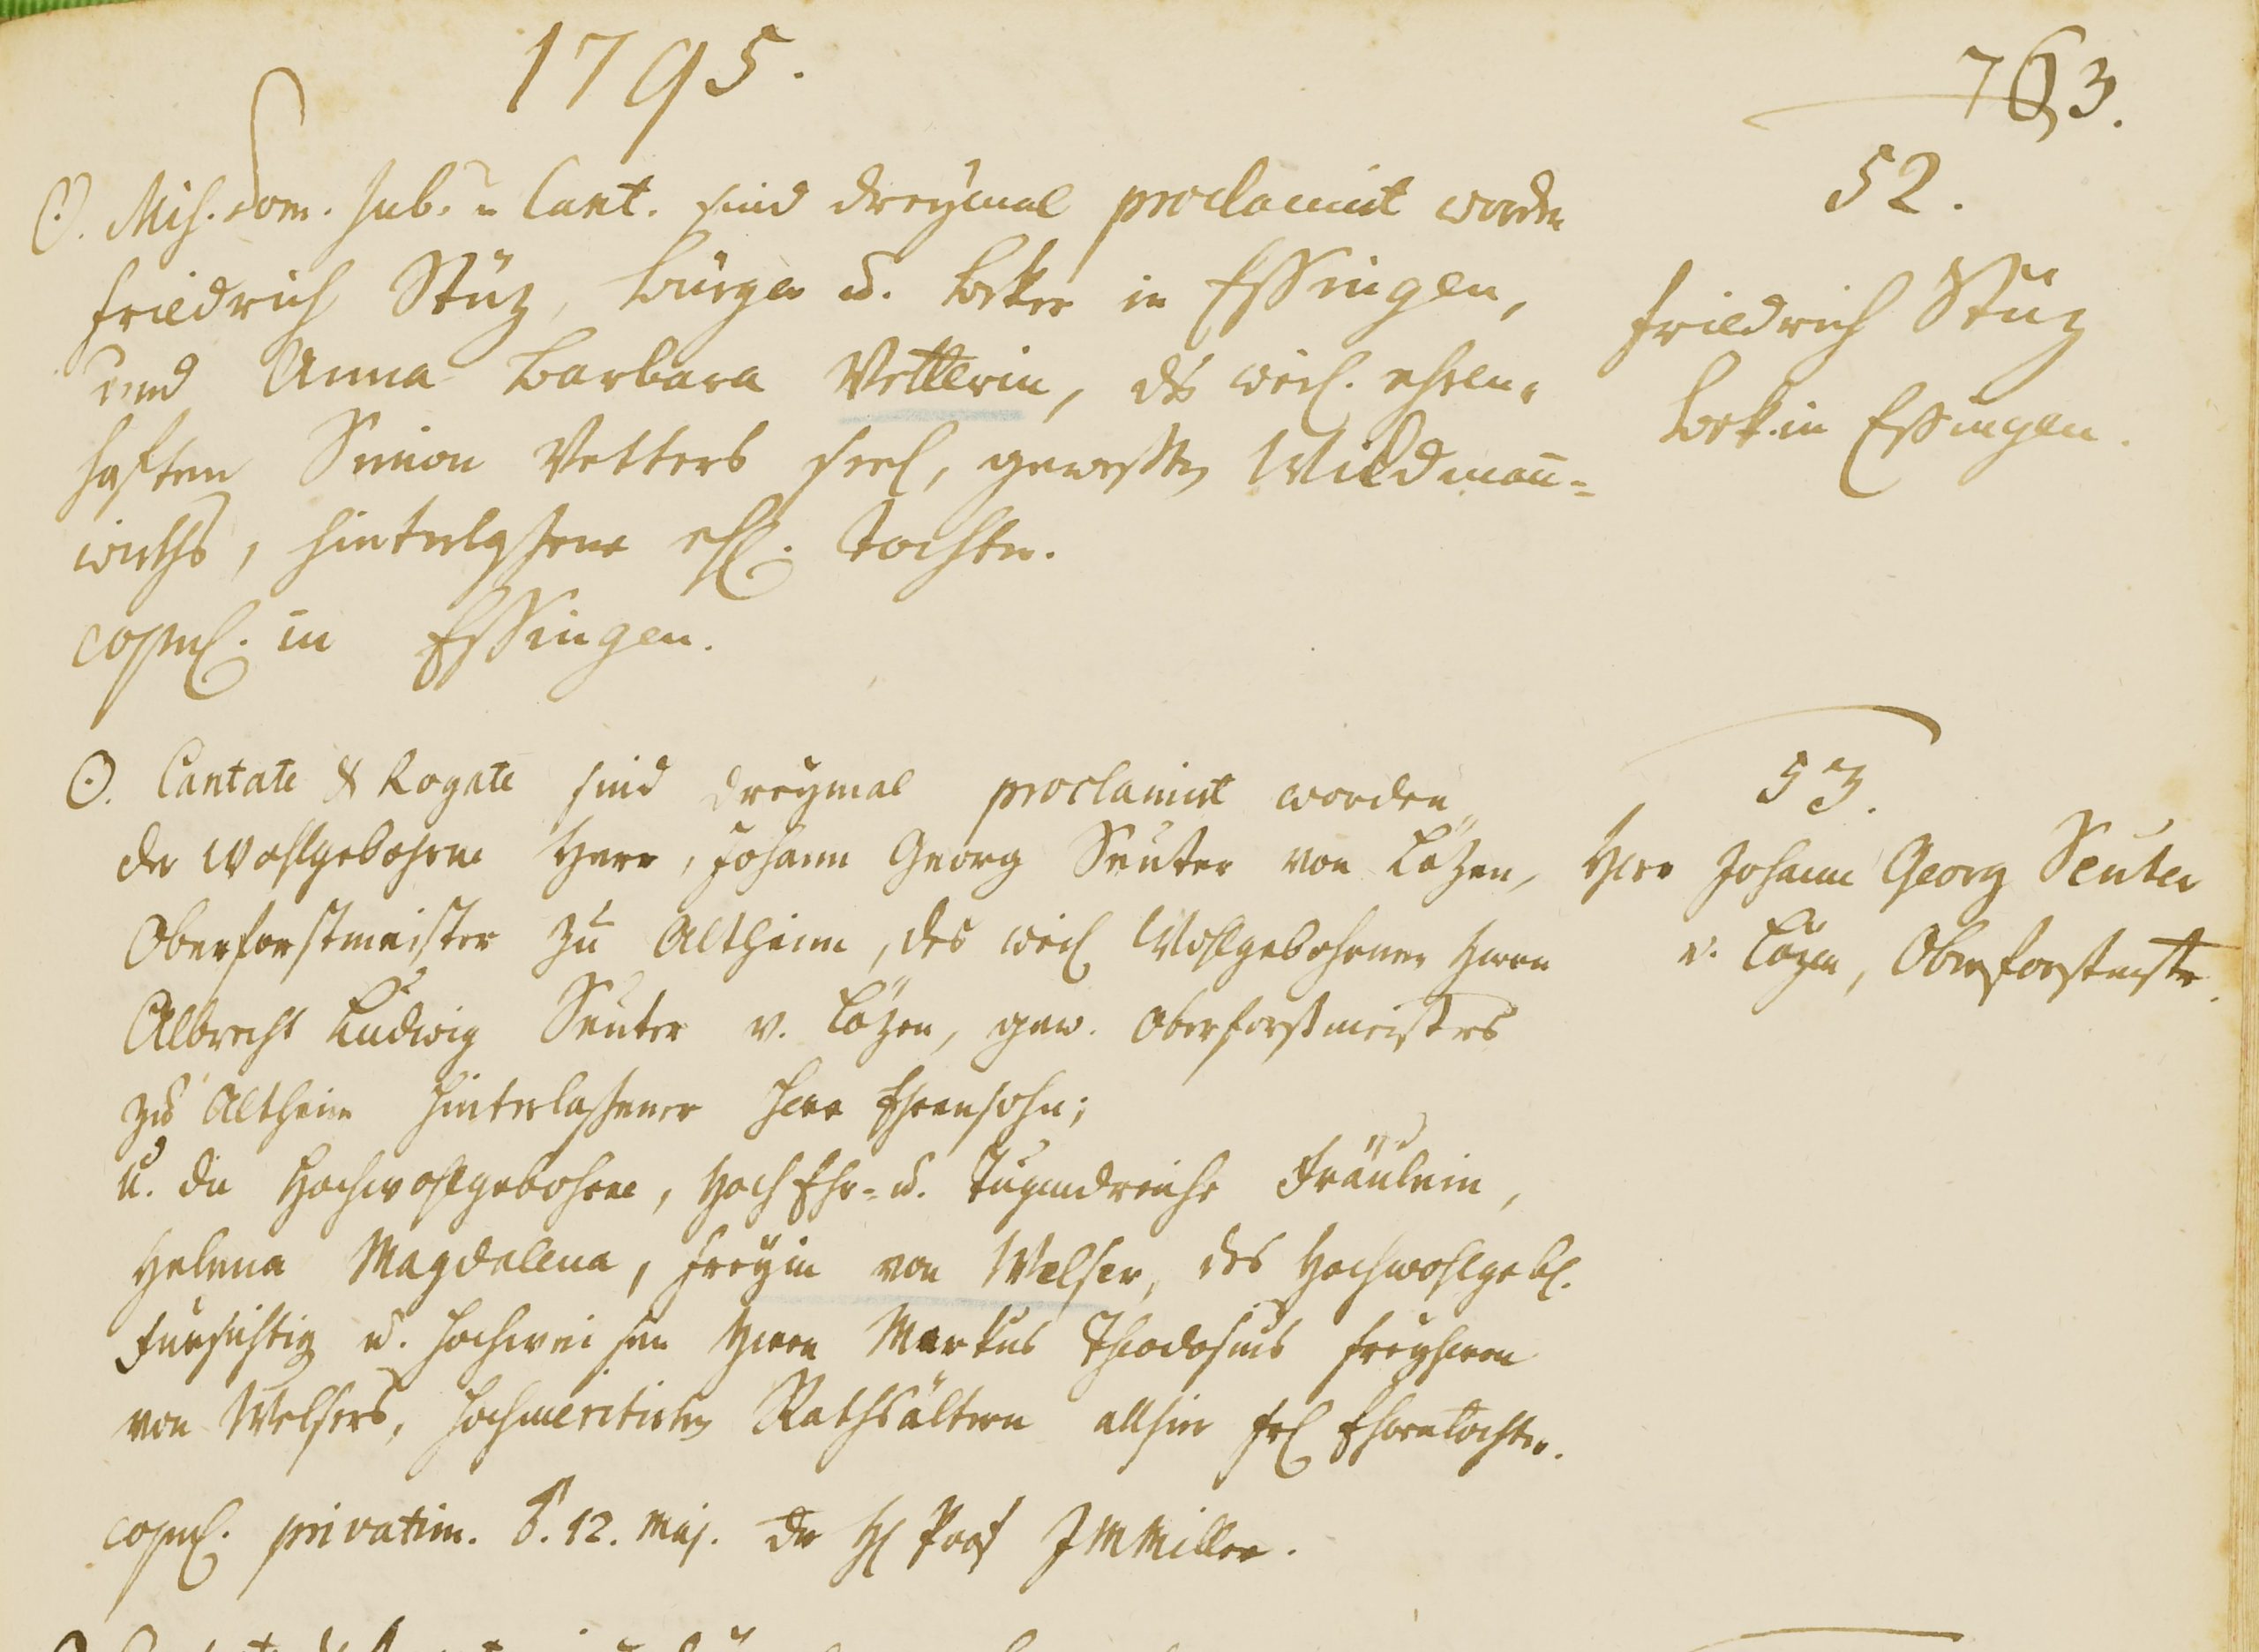 1795.
763.
52.
☉. Mis. Dom. Jub. u Cant. sind dreymal proclamirt worden
Friedrich Stüz, Burger u. Beker in Essingen,
und Anna Barbara Vetterin, des weil. ehren-
haften Simon Vetters seel, gewesten Wildmann-
wirths, hinterlassene ehl. Tochter.
copul. in Essingen.
Friedrich Stüz
Bek. in Essingen.
☉. Cantate & Rogate sind dreymal proclamirt worden
der Wohlgebohrne Herr, Johann Georg Seuter von Lözen,
Oberforstmeister zu Altheim, des weil Wohlgebohrnen Herrn
Albrecht Ludwig Seuter v. Lözen, gew. Oberforstmeisters
zu Altheim hinterlassener Herr Ehrensohn;
u. die Hochwohlgebohrne, Hoch Ehr- u. Tugendreiche Fräulein,
Helena Magdalena, Freyin von Welser, des Hochwohlgebl.
Fürsichtig u. Hochweisen Herrn Markus Theodosius Freyherrn
von Welsers, Hochmeritirten Rathsältern allhier Frl Ehrentochter.
copul. privatim. ♂. 12. Maj. der H Prof J M Miller.
53.
Herr Johann Georg Seuter
v. Lözen, Oberforstmstr.